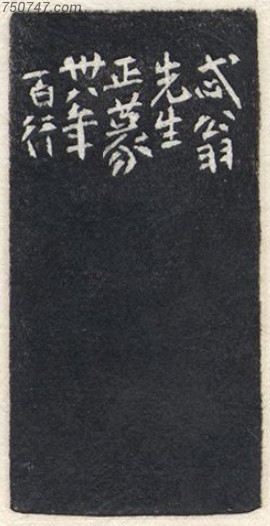 750747.com
忒翁
先生
正篆
卅六年
百行